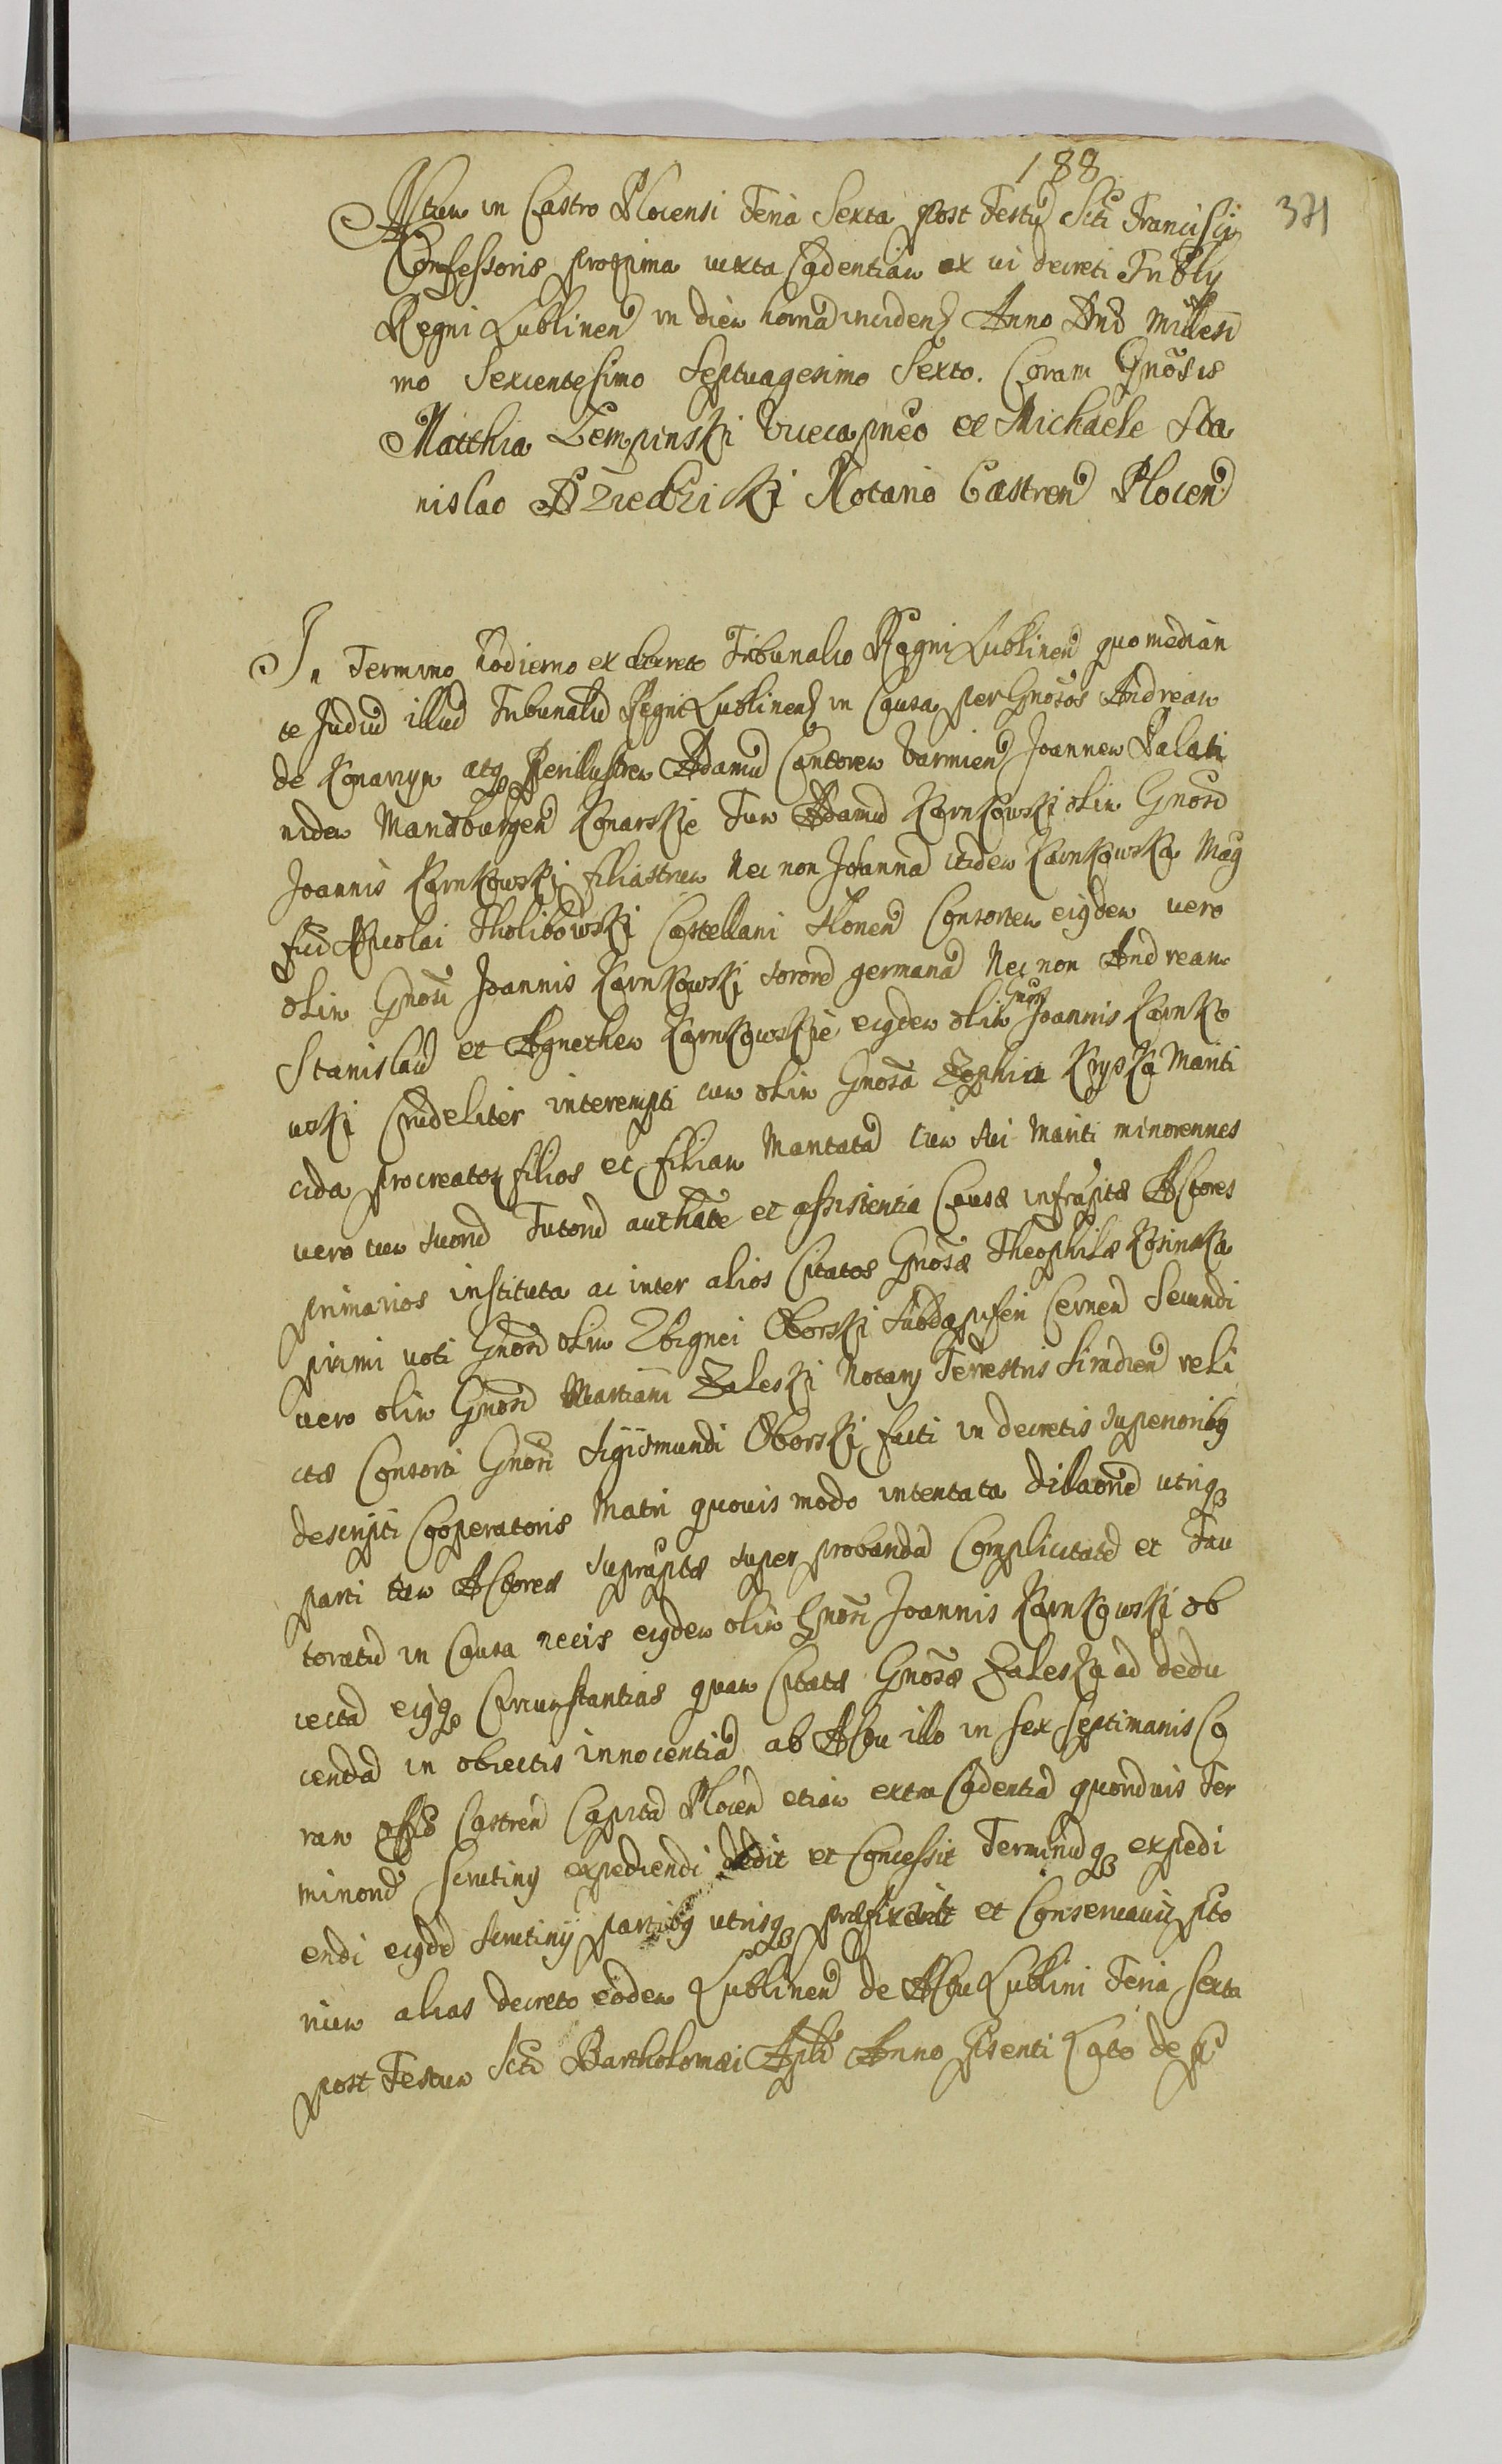 188
371
Actum in Castro Plocensi Feria Sexta post Festũ Scti Francisci
Confessoris proxima iuxta Cadentiam ex vi decreti Tribly
Regni Lublinen in diem hornã inciden Anno Dni Millesi
mo Sexcentesimo Septuagesimo Sexto. Coram Gnosis
Matthia Zempinski Vicecapneo et Michaele Sta
nislao Notario Castren Plocen
In Termino hodierno ex decreto Tribunalis Regni Lublinen quo median
te Judiũ illud Tribunalũ Regni Lublinen in Causa per Gnosos Andream
de Konarzyn atq Perillustrem Adamũ Cantorem Varmien Joannem Palati
nidem Mariæburgen Konarskie Tum Adamũ Karnkowski olim Gnosi
Joannis Karnkowski filiastrum Nec non Joannã itidem Karnkowska Mag
fici Nicolai Tholibowski Castellani Konen Consortem eiqdem vero
olim Gnosi Joannis Karnkowski sororẽ germanã Nec non Andream
Stanislaũ et Agnethem Karnkowskie eiqdem olim Gnosi Joannis Karnko
wski crudeliter interempti cum olim Gnosa Zophia Kryska Mariti
cida procreatos filios et filiam Maritatã cum sui Mariti minorennes
vero cum suorũ Tutorũ authãte et assistentia Causæ infraptæ Actores
primarios instituta ac inter alios Citatos Gnosæ Theophilæ Kosinska
primi voti Gnosi olim Zbignei Oborski Subdapiferi Cernen Secundi
vero olim Gnosi Martiani Zaleski Notary Terrestris Siradien reli
ctæ Consorti Gnosi Sigismundi Oborski facti in decretis superioribq
descripti Cooperatoris Matri quovis modo intentata dilaonẽ utriq
parti tam Actorea supraptæ super probandã Complicitatẽ et Fau
toratũ in Causa necis eiqdem olim Gnosi Joannis Karnkowski ob
iectã eiqq Circumstantias quam Citatæ Gnosæ Zaleska ad dedu
cendã in obiectis innocentiã ab Actu illo in sex septimanis Co
ram Offo Castren Capitã Plocen etiam extra Cadentiã quorũvis Ter
minorũ scrutiny expediendi dedit et Concessit Terminũq expedi
endi eiqdẽ scrutinÿ partibq utrisq præfixerit et Conservavit pto
rium alias decreto eodem Lublinen de Actu Lublini Feria sexta
post Festum Scti Bartholomæi Apli Anno Psenti Lato